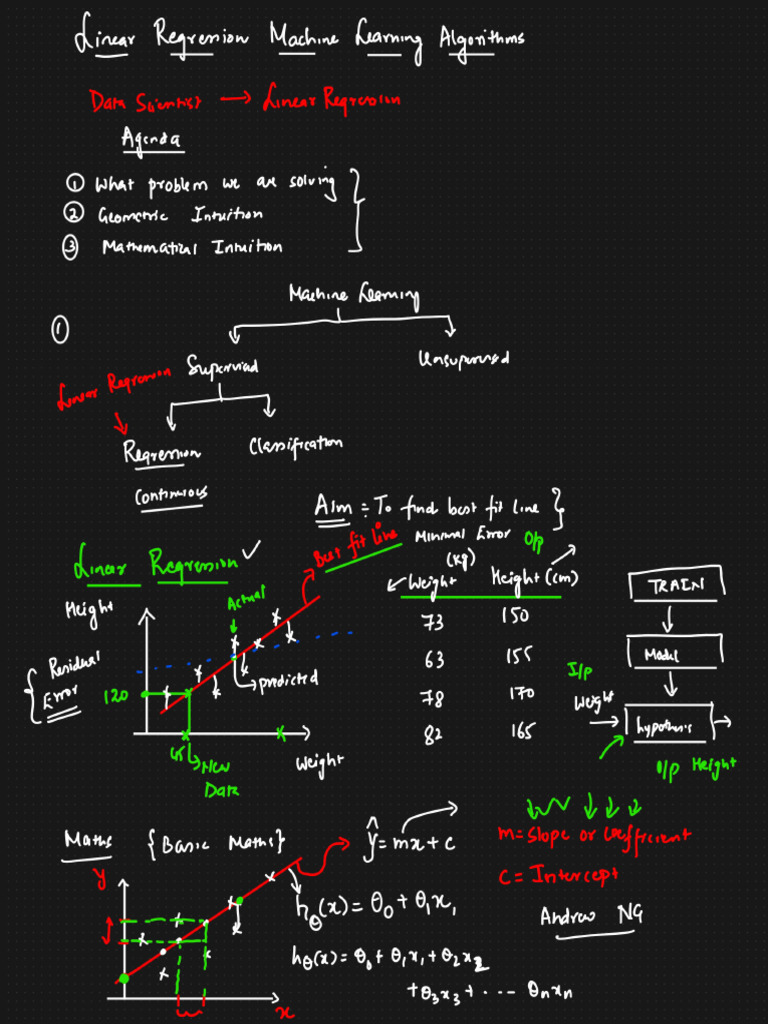 Linear Regression Machine Learning Algorithms
Data Scientist → Linear Regression
Agenda
① What problem we are solving
② Geometric Intuition
③ Mathematical Intuition
Machine Learning
①
Supervised
Unsupervised
Linear Regression
Regression
Classification
Continuous
Aim ÷ To find best fit line
Minimal Error
Linear Regression ✓
Best fit line
O/p
(kg)
Weight Height (cm)
73 150
63 155
78 170
82 165
Height
Actual
Residual
Error
120
predicted
45
New
Data
Weight
TRAIN
Model
I/p
Weight
hypothesis
O/p Height
Maths {Basic Maths}
ŷ = mx + c
m = Slope or Coefficient
c = Intercept
Andrew NG
y
x
hθ(x) = θ₀ + θ₁x₁
hθ(x) = θ₀ + θ₁x₁ + θ₂x₂
+ θ₃x₃ + ---- θₙxₙ